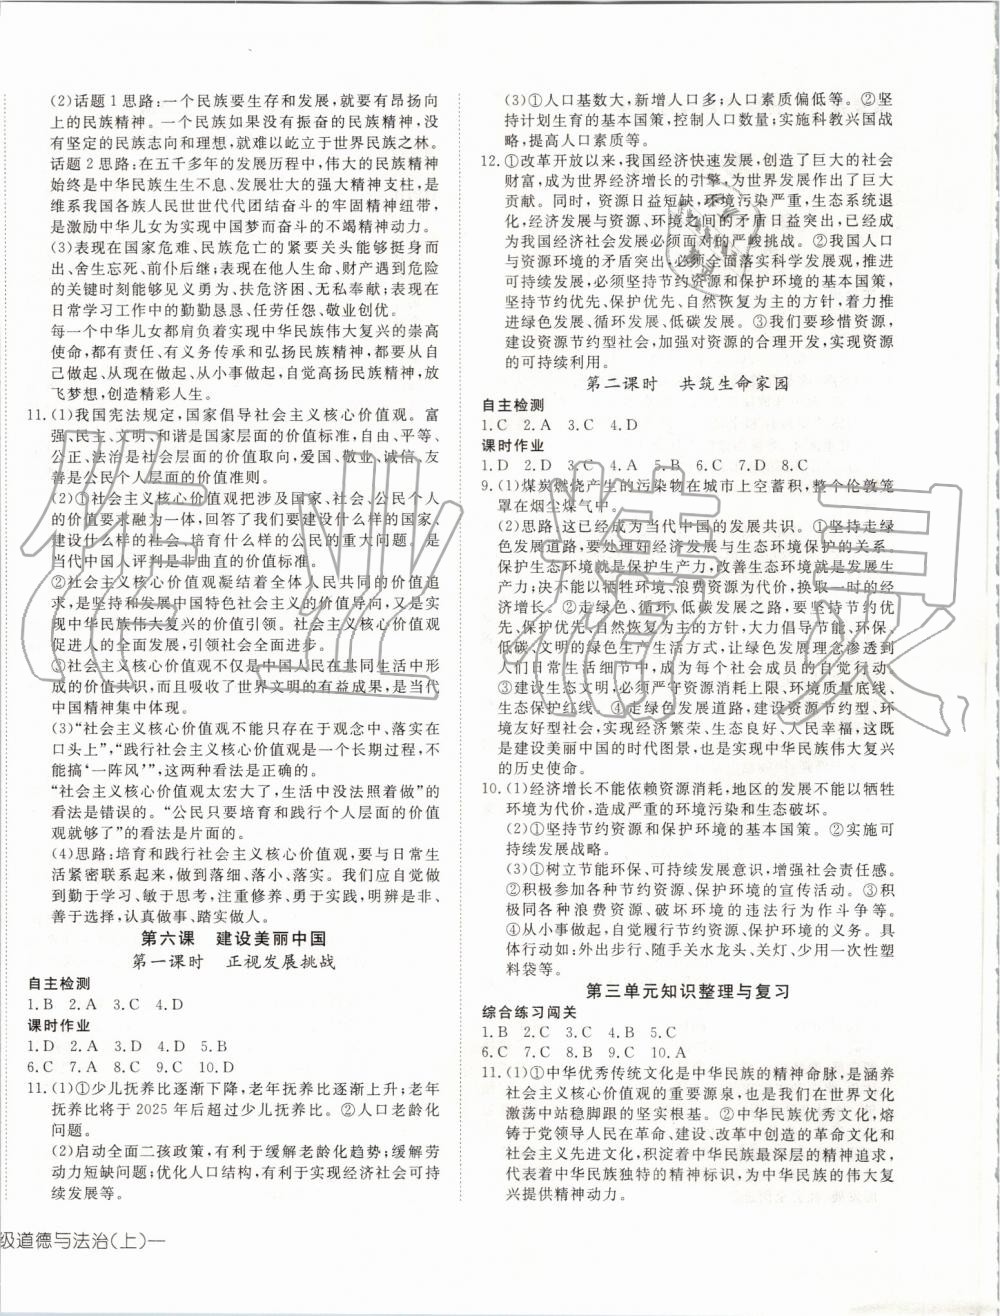 (2)话题1思路:一个民族要生存和发展,就要有昂扬向
上的民族精神。一个民族如果没有振奋的民族精神,没
有坚定的民族志向和理想,就难以屹立于世界民族之林。
话题2思路:在五千多年的发展历程中,伟大的民族精神
始终是中华民族生生不息、发展壮大的强大精神支柱,是
维系我国各族人民世世代代团结奋斗的牢固精神纽带,
是激励中华儿女为实现中国梦而奋斗的不竭精神动力。
(3)表现在国家危难、民族危亡的紧要关头能够挺身而
出、舍生忘死、前仆后继;表现在他人生命、财产遇到危险
的关键时刻能够见义勇为、扶危济困、无私奉献;表现在
日常学习工作中的勤勤恳恳、任劳任怨、敬业创优。
每一个中华儿女都肩负着实现中华民族伟大复兴的崇高
使命,都有责任、有义务传承和弘扬民族精神,都要从自
己做起、从现在做起、从小事做起,自强不息,不懈奋斗,放
飞梦想,创造精彩人生。
11.(1)我国宪法规定,国家倡导社会主义核心价值观。富
强、民主、文明、和谐是国家层面的价值标准,自由、平等、
公正、法治是社会层面的价值取向,爱国、敬业、诚信、友
善是公民个人层面的价值准则。
(2)①社会主义核心价值观把涉及国家、社会、公民个人
的价值要求融为一体,回答了我们要建设什么样的国家、
建设什么样的社会、培育什么样的公民的重大问题。是
当代中国人评判是非曲直的价值标准。
②社会主义核心价值观凝结着全体人民共同的价值追
求,是坚持和发展中国特色社会主义的价值导向,又是实
现中华民族伟大复兴的价值引领。社会主义核心价值观
促进人的全面发展,引领社会全面进步。
③社会主义核心价值观不仅是中国人民在共同生活中形
成的价值共识,而且吸收了世界文明的有益成果,是当代
中国精神集中体现。
(3)“社会主义核心价值观不能只存在于观念中、落实在
口头上”,“践行社会主义核心价值观是一个长期过程,不
能搞‘一阵风’”,这两种看法是正确的。
“社会主义核心价值观太宏大了,生活中没法照着做”的
看法是错误的。“公民只要培育和践行个人层面的价值
观就够了”的看法是片面的。
(4)思路:培育和践行社会主义核心价值观,要与日常生
活紧密联系起来,做到落细、落小、落实。我们应自觉做
到勤于学习、敏于思考,注重修养、勇于实践,明辨是非、
善于选择,认真做事、踏实做人。
第六课 建设美丽中国
第一课时 正视发展挑战
自主检测
1.B 2.A 3.C 4.D
课时作业
1.D 2.A 3.D 4.D 5.B
6.C 7.A 8.C 9.C 10.D
11.(1)①少儿抚养比逐渐下降,老年抚养比逐渐上升;老年
抚养比将于2025年后超过少儿抚养比。②人口老龄化
问题。
(2)启动全面二孩政策,有利于缓解老龄化趋势;缓解劳
动力短缺问题;优化人口结构,有利于实现经济社会可持
续发展等。
级道德与法治(上)一
(3)①人口基数大,新增人口多;人口素质偏低等。②坚
持计划生育的基本国策,控制人口数量;实施科教兴国战
略,提高人口素质等。
12.①改革开放以来,我国经济快速发展,创造了巨大的社会
财富,成为世界经济增长的引擎,为世界发展作出了巨大
贡献。同时,资源日益短缺,环境污染严重,生态系统退
化,经济发展与资源、环境之间的矛盾日益突出,已经成
为我国经济社会发展必须面对的严峻挑战。②我国人口
与资源环境的矛盾突出,必须全面落实科学发展观,推进
可持续发展,必须坚持节约资源和保护环境的基本国策,
坚持节约优先、保护优先、自然恢复为主的方针,着力推
进绿色发展、循环发展、低碳发展。③我们要珍惜资源,
建设资源节约型社会,加强对资源的合理开发,实现资源
的可持续利用。
第二课时 共筑生命家园
自主检测
1.C 2.A 3.C 4.D
课时作业
1.D 2.D 3.C 4.A 5.B 6.C 7.D 8.C
9.(1)煤炭燃烧产生的污染物在城市上空蓄积,整个伦敦笼
罩在烟尘煤气中。
(2)思路:这已经成为当代中国的发展共识。①坚持走绿
色发展道路,要处理好经济发展与生态环境保护的关系。
保护生态环境就是保护生产力,改善生态环境就是发展生
产力;决不能以牺牲环境、浪费资源为代价,换取一时的经
济增长。②走绿色、循环、低碳发展之路,要坚持节约优
先、保护优先、自然恢复为主的方针,大力倡导节能、环保、
低碳、文明的绿色生产生活方式,让绿色发展理念渗透到
人们日常生活细节中,成为每个社会成员的自觉行动。
③建设生态文明,必须严守资源消耗上限、环境质量底线、
生态保护红线。④走绿色发展道路,建设资源节约型、环
境友好型社会,实现经济繁荣、生态良好、人民幸福,这既
是建设美丽中国的时代图景,也是实现中华民族伟大复兴
的历史使命。
10.(1)经济增长不能依赖资源消耗,地区的发展不能以牺牲
环境为代价,造成严重的环境污染和生态破坏。
(2)①坚持节约资源和保护环境的基本国策。②实施可
持续发展战略。
(3)①树立节能环保、可持续发展意识,增强社会责任感。
②积极参加各种节约资源、保护环境的宣传活动。③积
极同各种浪费资源、破坏环境的违法行为作斗争等。
④从小事做起,自觉履行节约资源、保护环境的义务。具
体行动如:外出步行、随手关水龙头、关灯、少用一次性塑
料袋等。
第三单元知识整理与复习
综合练习闯关
1.B 2.C 3.C 4.B 5.C
6.C 7.C 8.D 9.C 10.A
11.(1)①中华优秀传统文化是中华民族的精神命脉,是涵养
社会主义核心价值观的重要源泉,也是我们在世界文化
激荡中站稳脚跟的坚实根基。②中华民族优秀文化,熔
铸于党领导人民在革命、建设、改革中创造的革命文化和
社会主义先进文化,积淀着中华民族最深层的精神追求,
代表着中华民族独特的精神标识,为中华民族的伟大复
兴提供精神动力。